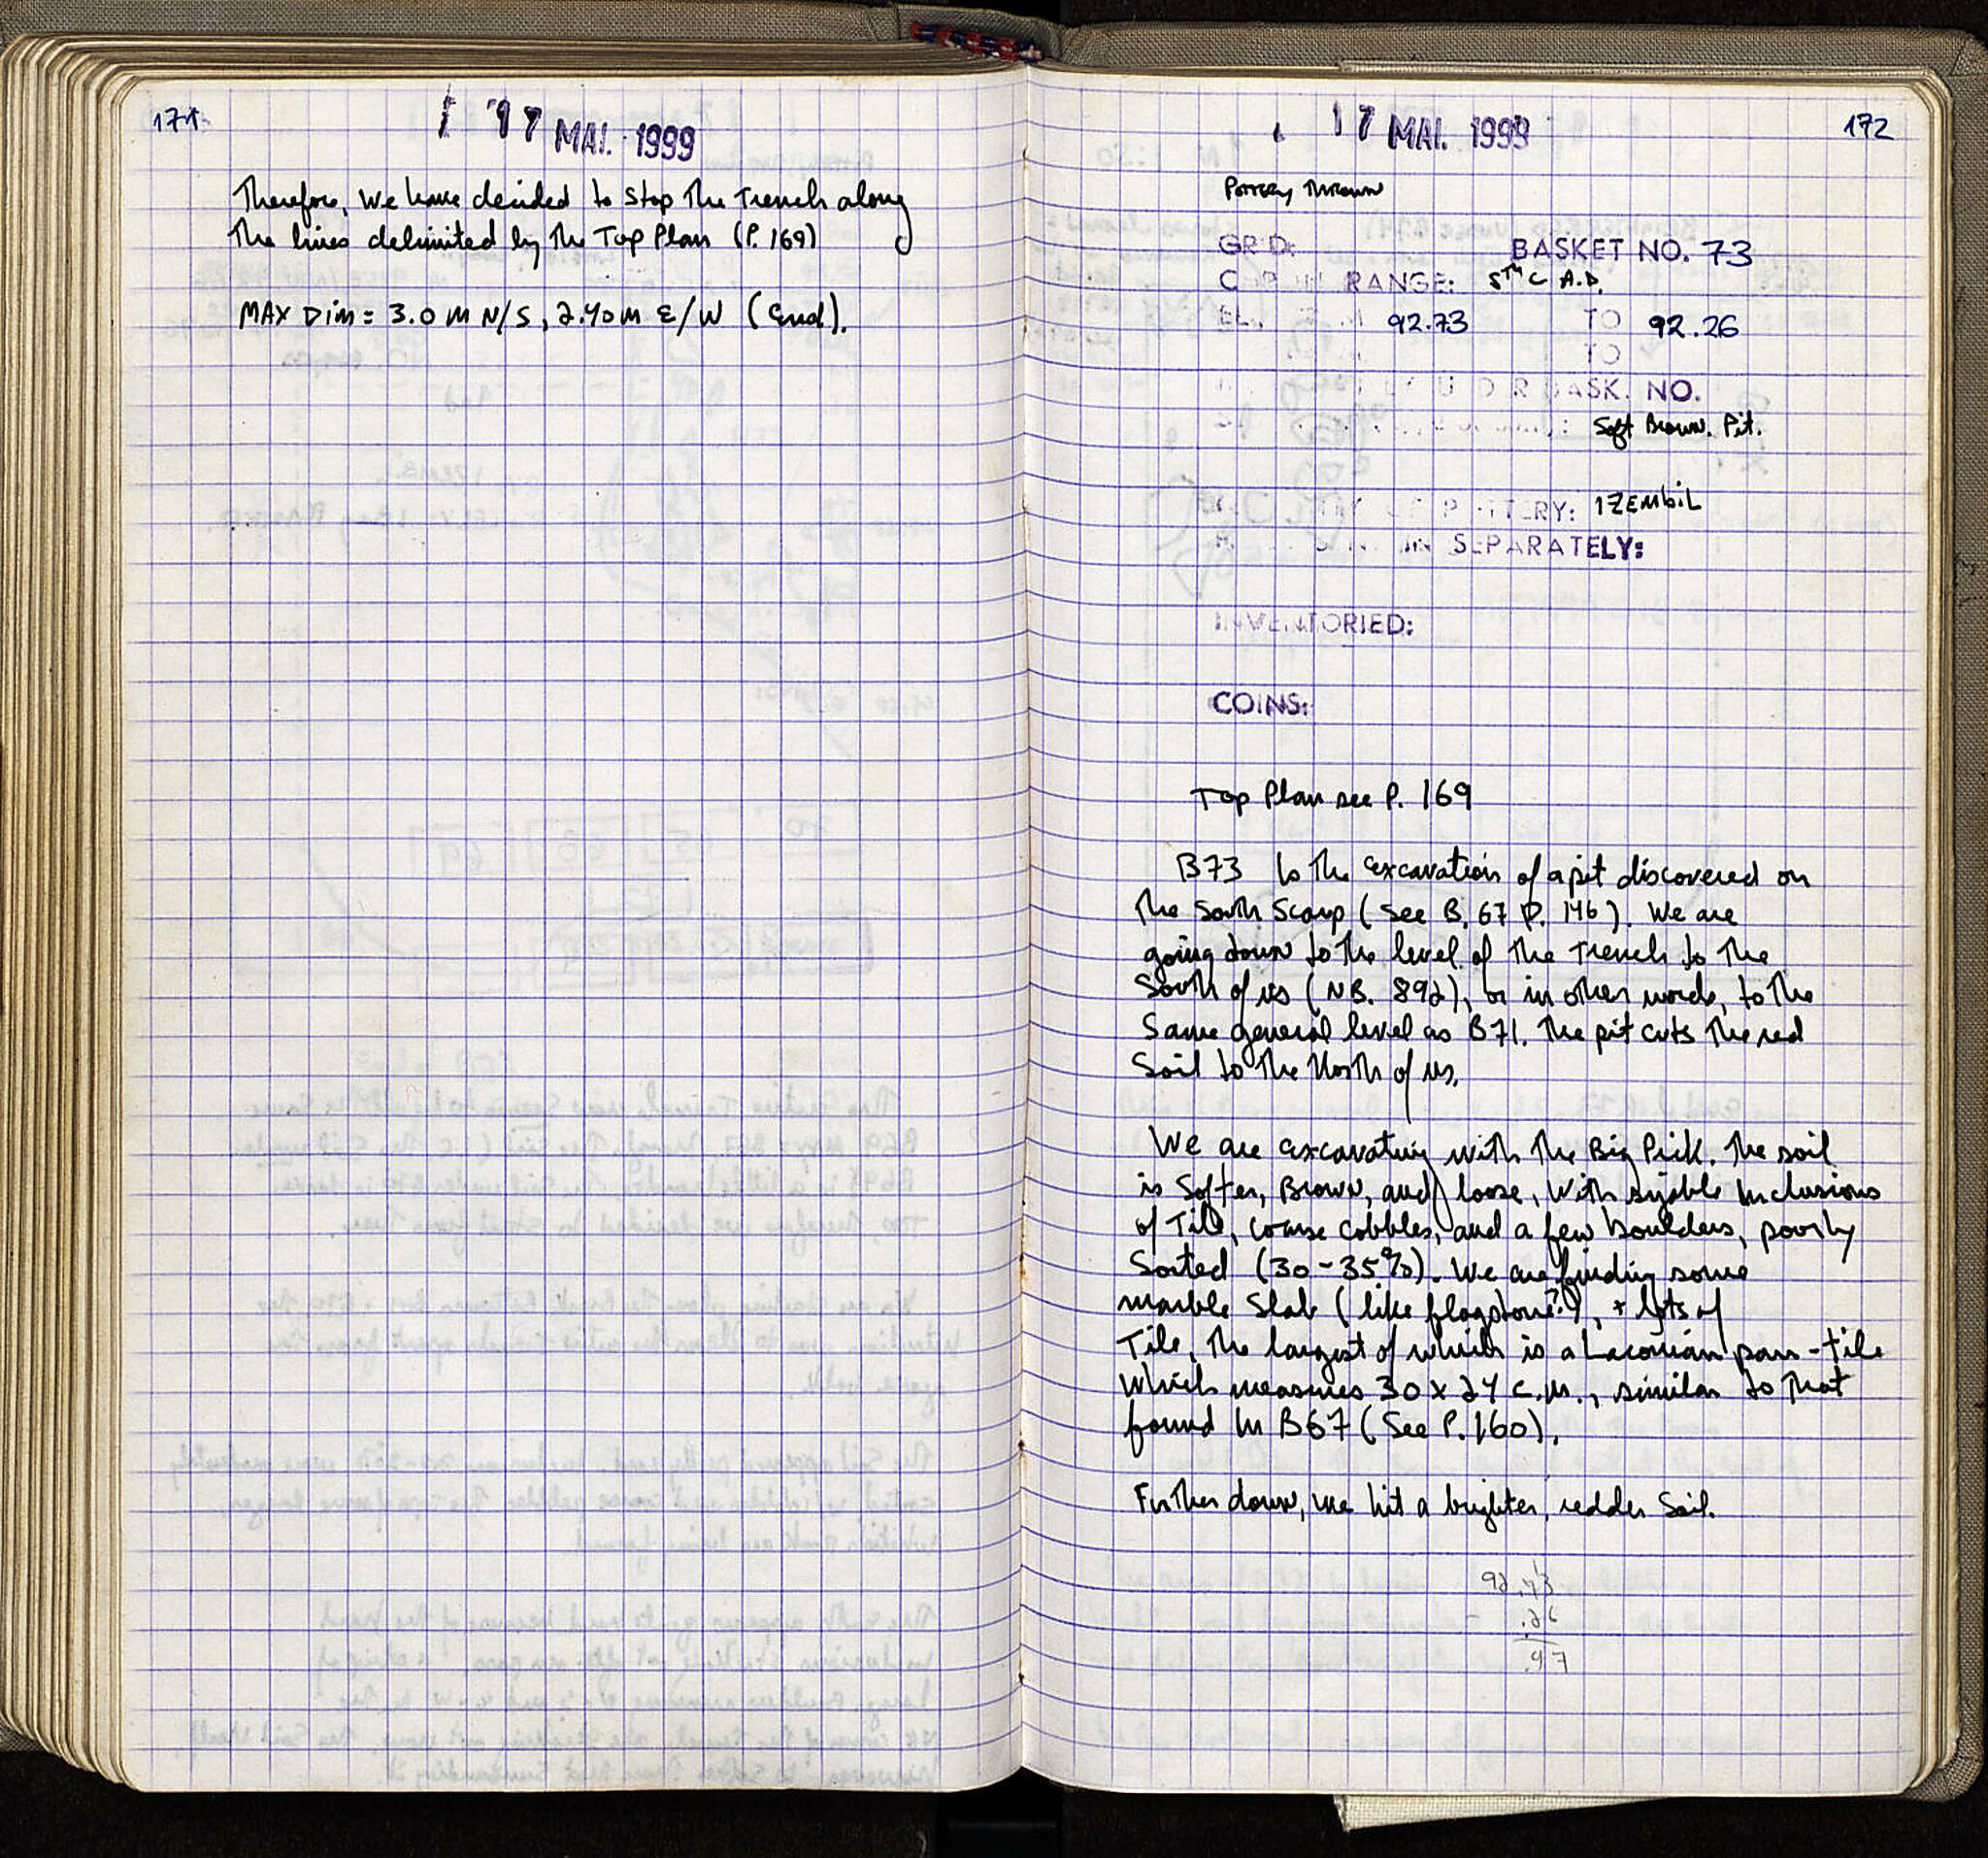 171
17 MAI. 1999
Therefore, we have decided to stop the Trench along
the lines delimited by the Top Plan (P. 169)
MAX Dim = 3.0 M N/S, 2.40m E/W (end).
17 MAI. 1999
172
Pottery Thrown
GRID: BASKET NO. 73
RANGE: 5th C A.D.
92.73 TO 92.26
TO
BASK. NO.
Soft Brown. Pit.
POTTERY: 1 ZEMBIL
SEPARATELY:
INVENTORIED:
COINS:
Top Plan see P. 169
B73 is the excavation of a pit discovered on
the South Scarp (see B. 67 P. 146). We are
going down to the level of the Trench to the
South of us (NB. 892), or in other words, to the
Same general level as B71. The pit cuts the red
Soil to the North of us.
We are excavating with the Big Pick. The soil
is Softer, Brown, and loose, with sizable Inclusions
of Tile, coarse cobbles, and a few boulders, poorly
Sorted (30-35%). We are finding some
marble Slab (like flagstone?), + lots of
Tile, the largest of which is a Laconian pan-tile
which measures 30 x 24 c.m., similar to that
found in B67 (See P. 160).
Further down, we hit a brighter, redder Soil.
92.73
.26